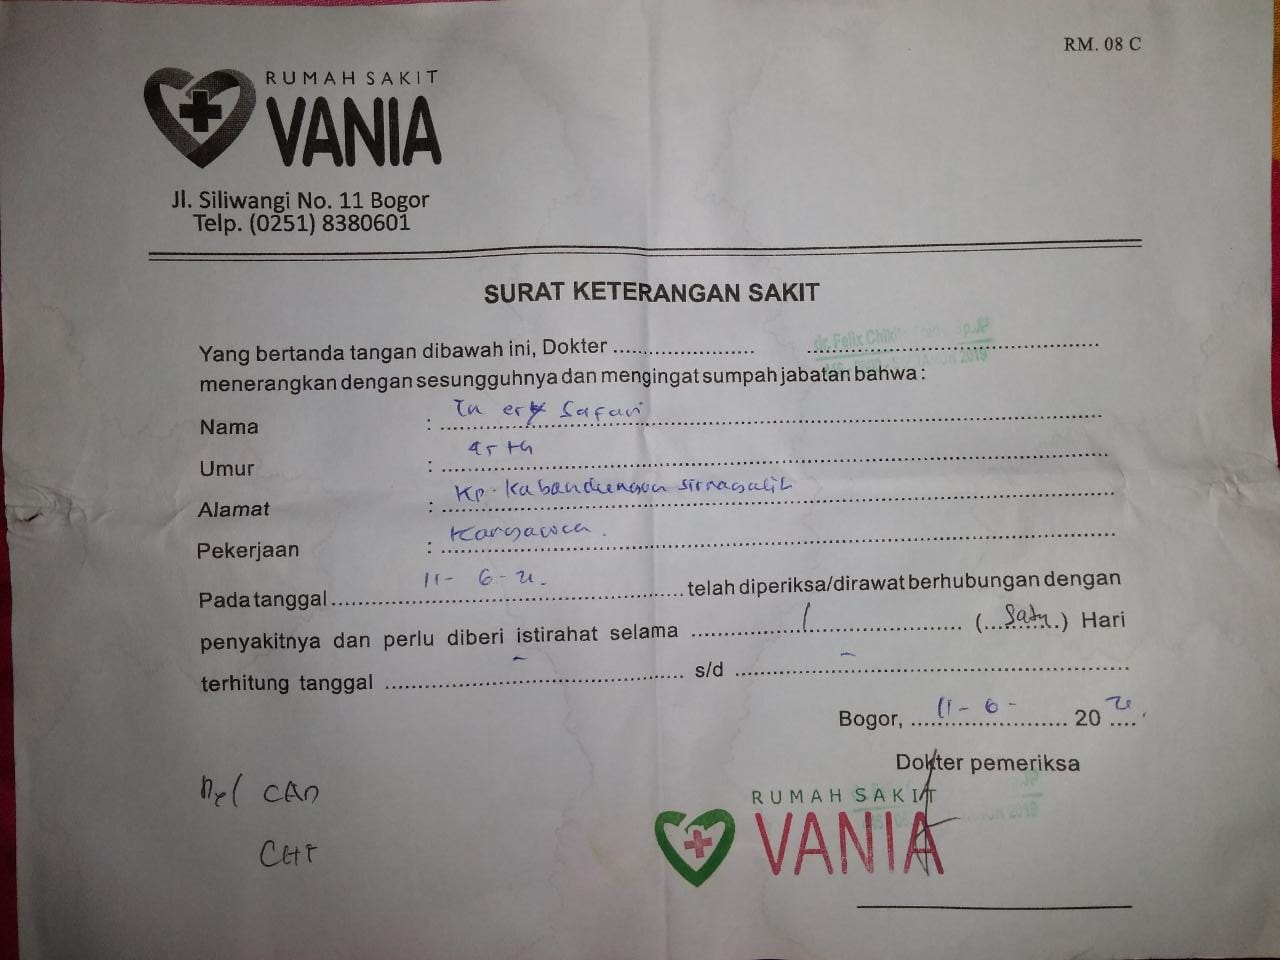 RM. 08 C
RUMAH SAKIT
VANIA
Jl. Siliwangi No. 11 Bogor
Telp. (0251) 8380601
SURAT KETERANGAN SAKIT
dr. Felix
Yang bertanda tangan dibawah ini, Dokter ......................
2019
menerangkan dengan sesungguhnya dan mengingat sumpah jabatan bahwa :
Nama : Tn Safari
Umur : th
Alamat : Kp. Kabandungan sirnagalih
Pekerjaan : Karyawan.
Pada tanggal 11-6-21. telah diperiksa/dirawat berhubungan dengan
penyakitnya dan perlu diberi istirahat selama 1 (Satu) Hari
terhitung tanggal - s/d -
Bogor, 11-6- 2021
Dokter pemeriksa
CAD
CHF
RUMAH SAKIT
VANIA